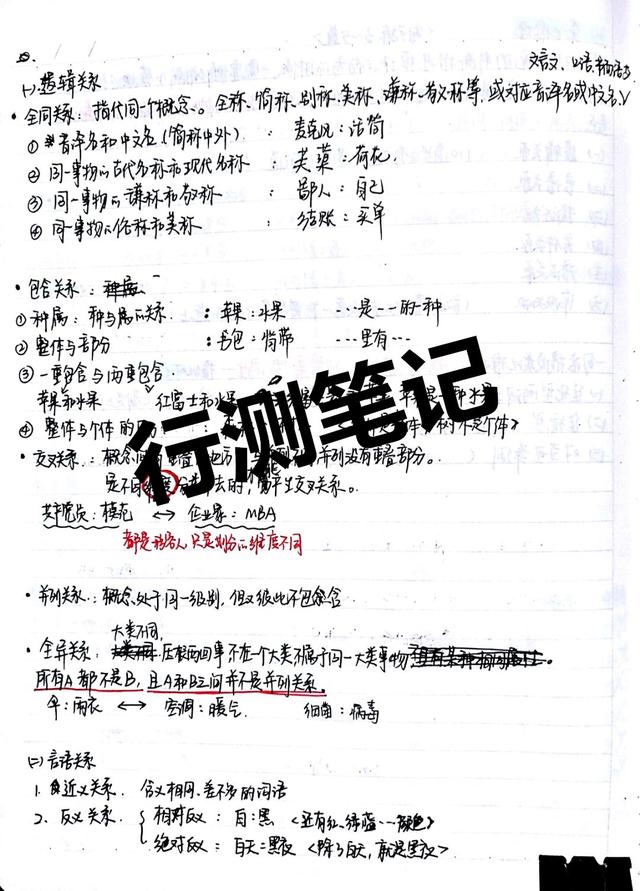 文言文、口语、书面语
(一)逻辑关系
• 全同关系：指代同一个概念。全称、简称、别称、美称、谦称、敬称等，或对应音译名或中文名
① 音译名和中文名（简称中外）：麦克风：话筒
② 同一事物的古代名称和现代名称：芙蕖：荷花
③ 同一事物的谦称和敬称：鄙人：自己
④ 同一事物的俗称和美称：结账：买单
• 包含关系：种属
① 种属：种与属的关系：苹果：水果 …是…的一种
② 整体与部分：书包：背带 …里有…
③ 一更包含与两更包含
苹果和水果 红富士和水果
④ 整体与个体的
• 交叉关系：概念间有重叠地方，并没有重叠部分。
是不同维度去的，产生交叉关系。
共产党员：模范 ↔ 企业家：MBA
都是 人 只是划分的维度不同
• 并列关系：概念处于同一级别，但又彼此不包含
大类不同，
• 全异关系：压根两回事不在一个大类不属于同一大类事物
所有A都不是B，且A和B之间并不是并列关系。
伞：雨衣 ↔ 空调：暖气 细菌：病毒
(二)言语关系
1. 近义关系. 含义相同、差不多的词语
2. 反义关系. 相对反义：白：黑 <还有红、绿蓝…颜色>
绝对反义：白天：黑夜 <除了白天，就是黑夜>
行测笔记